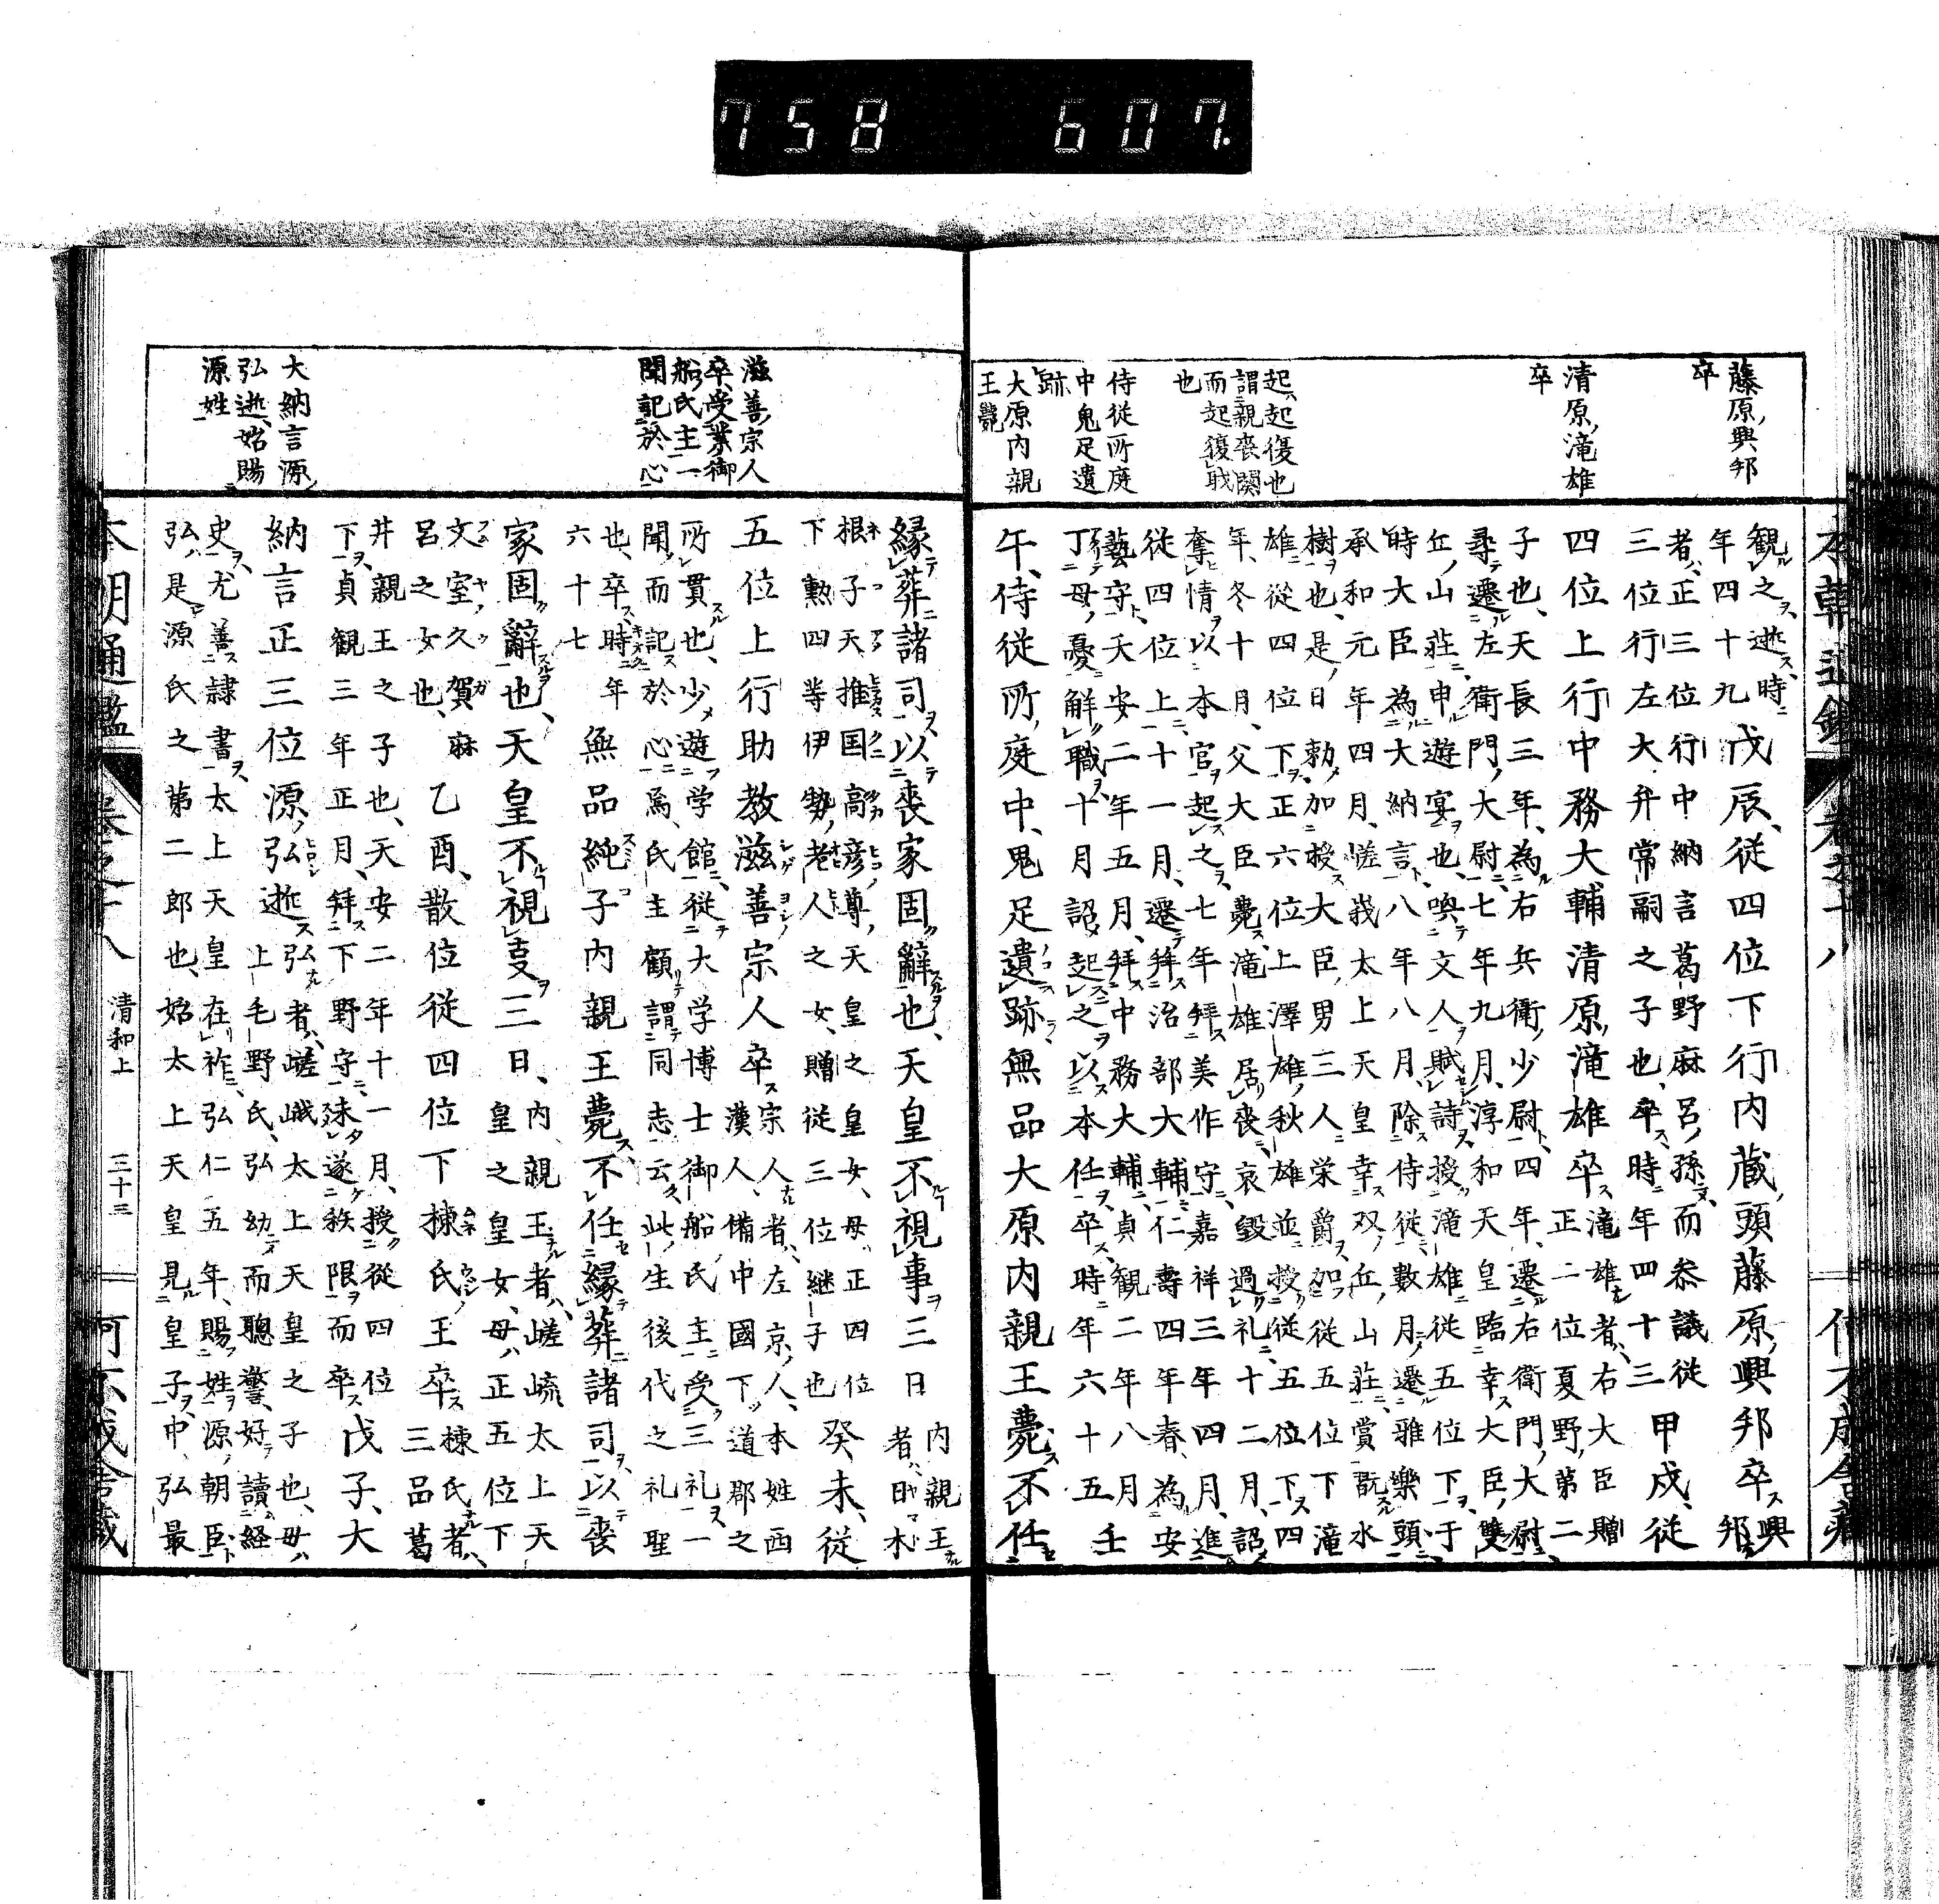 758 607
藤原興邦
卒
清原滝雄
卒
起起復也
謂親喪闋
而起復職
也
侍從所庭
中鬼足遺
跡
大原内親
王薨
観之逝時
年四十九
戊辰、從四位下行内蔵頭藤原興邦卒
興
邦
者正三位行中納言葛野麻呂孫而参議從
三位行左大弁常嗣之子也、卒時年四十三
甲戌、從
四位上行中務大輔清原滝雄卒
滝雄者右大臣贈
正二位夏野第二
子也、天長三年、為右兵衛少尉四年、遷右衛門大尉
尋遷左衛門大尉七年九月、淳和天皇臨幸大臣雙
丘山荘申遊宴也、喚文人賦詩授滝雄從五位下、于
時大臣為大納言八年八月、除侍從數月遷雅樂頭
承和元年四月、嵯峩太上天皇幸双丘山荘賞翫水
樹也、是日勅加授大臣男三人榮爵加從五位下滝
雄從四位下正六位上澤雄秋雄並授從五位下四
年、冬十月、父大臣薨滝雄居喪哀毀過礼十二月、詔
奪情以本官起之七年拜美作守嘉祥三年四月、進
從四位上十一月、遷拜治部大輔仁壽四年春、為安
藝守天安二年五月、拜中務大輔貞観二年八月
丁母憂解職十月詔起之以本任卒時年六十五
壬
午、侍從所庭中、鬼足遺跡無品大原内親王薨不任
滋善宗人
卒、受業御
船氏主一
聞記於心
大納言源
弘逝始賜
源姓
縁葬諸司以喪家固辭也、天皇不視事三日
内親王
者日本
根子天推国高彦尊天皇之皇女、母正四位
下勲四等伊勢老人之女、贈從三位継子也
癸未、從
五位上行助教滋善宗人卒
宗人者左京人、本姓西
漢人、備中國下道郡之
所貫也、少遊学館從大学博士御船氏主受三礼一
聞而記於心焉、氏主顧謂同志云此生後代之礼聖
也、卒時年
六十七
無品純子内親王薨不任縁葬諸司以喪
家固辭也、天皇不視事三日、
内親王者嵯峨太上天
皇之皇女、母正五位下
文室久賀麻
呂之女也、
乙酉、散位從四位下棟氏王卒
棟氏者
三品葛
井親王之子也、天安二年十一月、授從四位
下貞観三年正月、拜下野守未遂秩限而卒
戊子、大
納言正三位源弘逝
弘者嵯峨太上天皇之子也、母
上毛野氏、弘幼而聰警好讀経
史尤善隷書太上天皇在祚弘仁五年、賜姓源朝臣
弘是源氏之第二郎也、始太上天皇見皇子中弘最
清和上
三十三